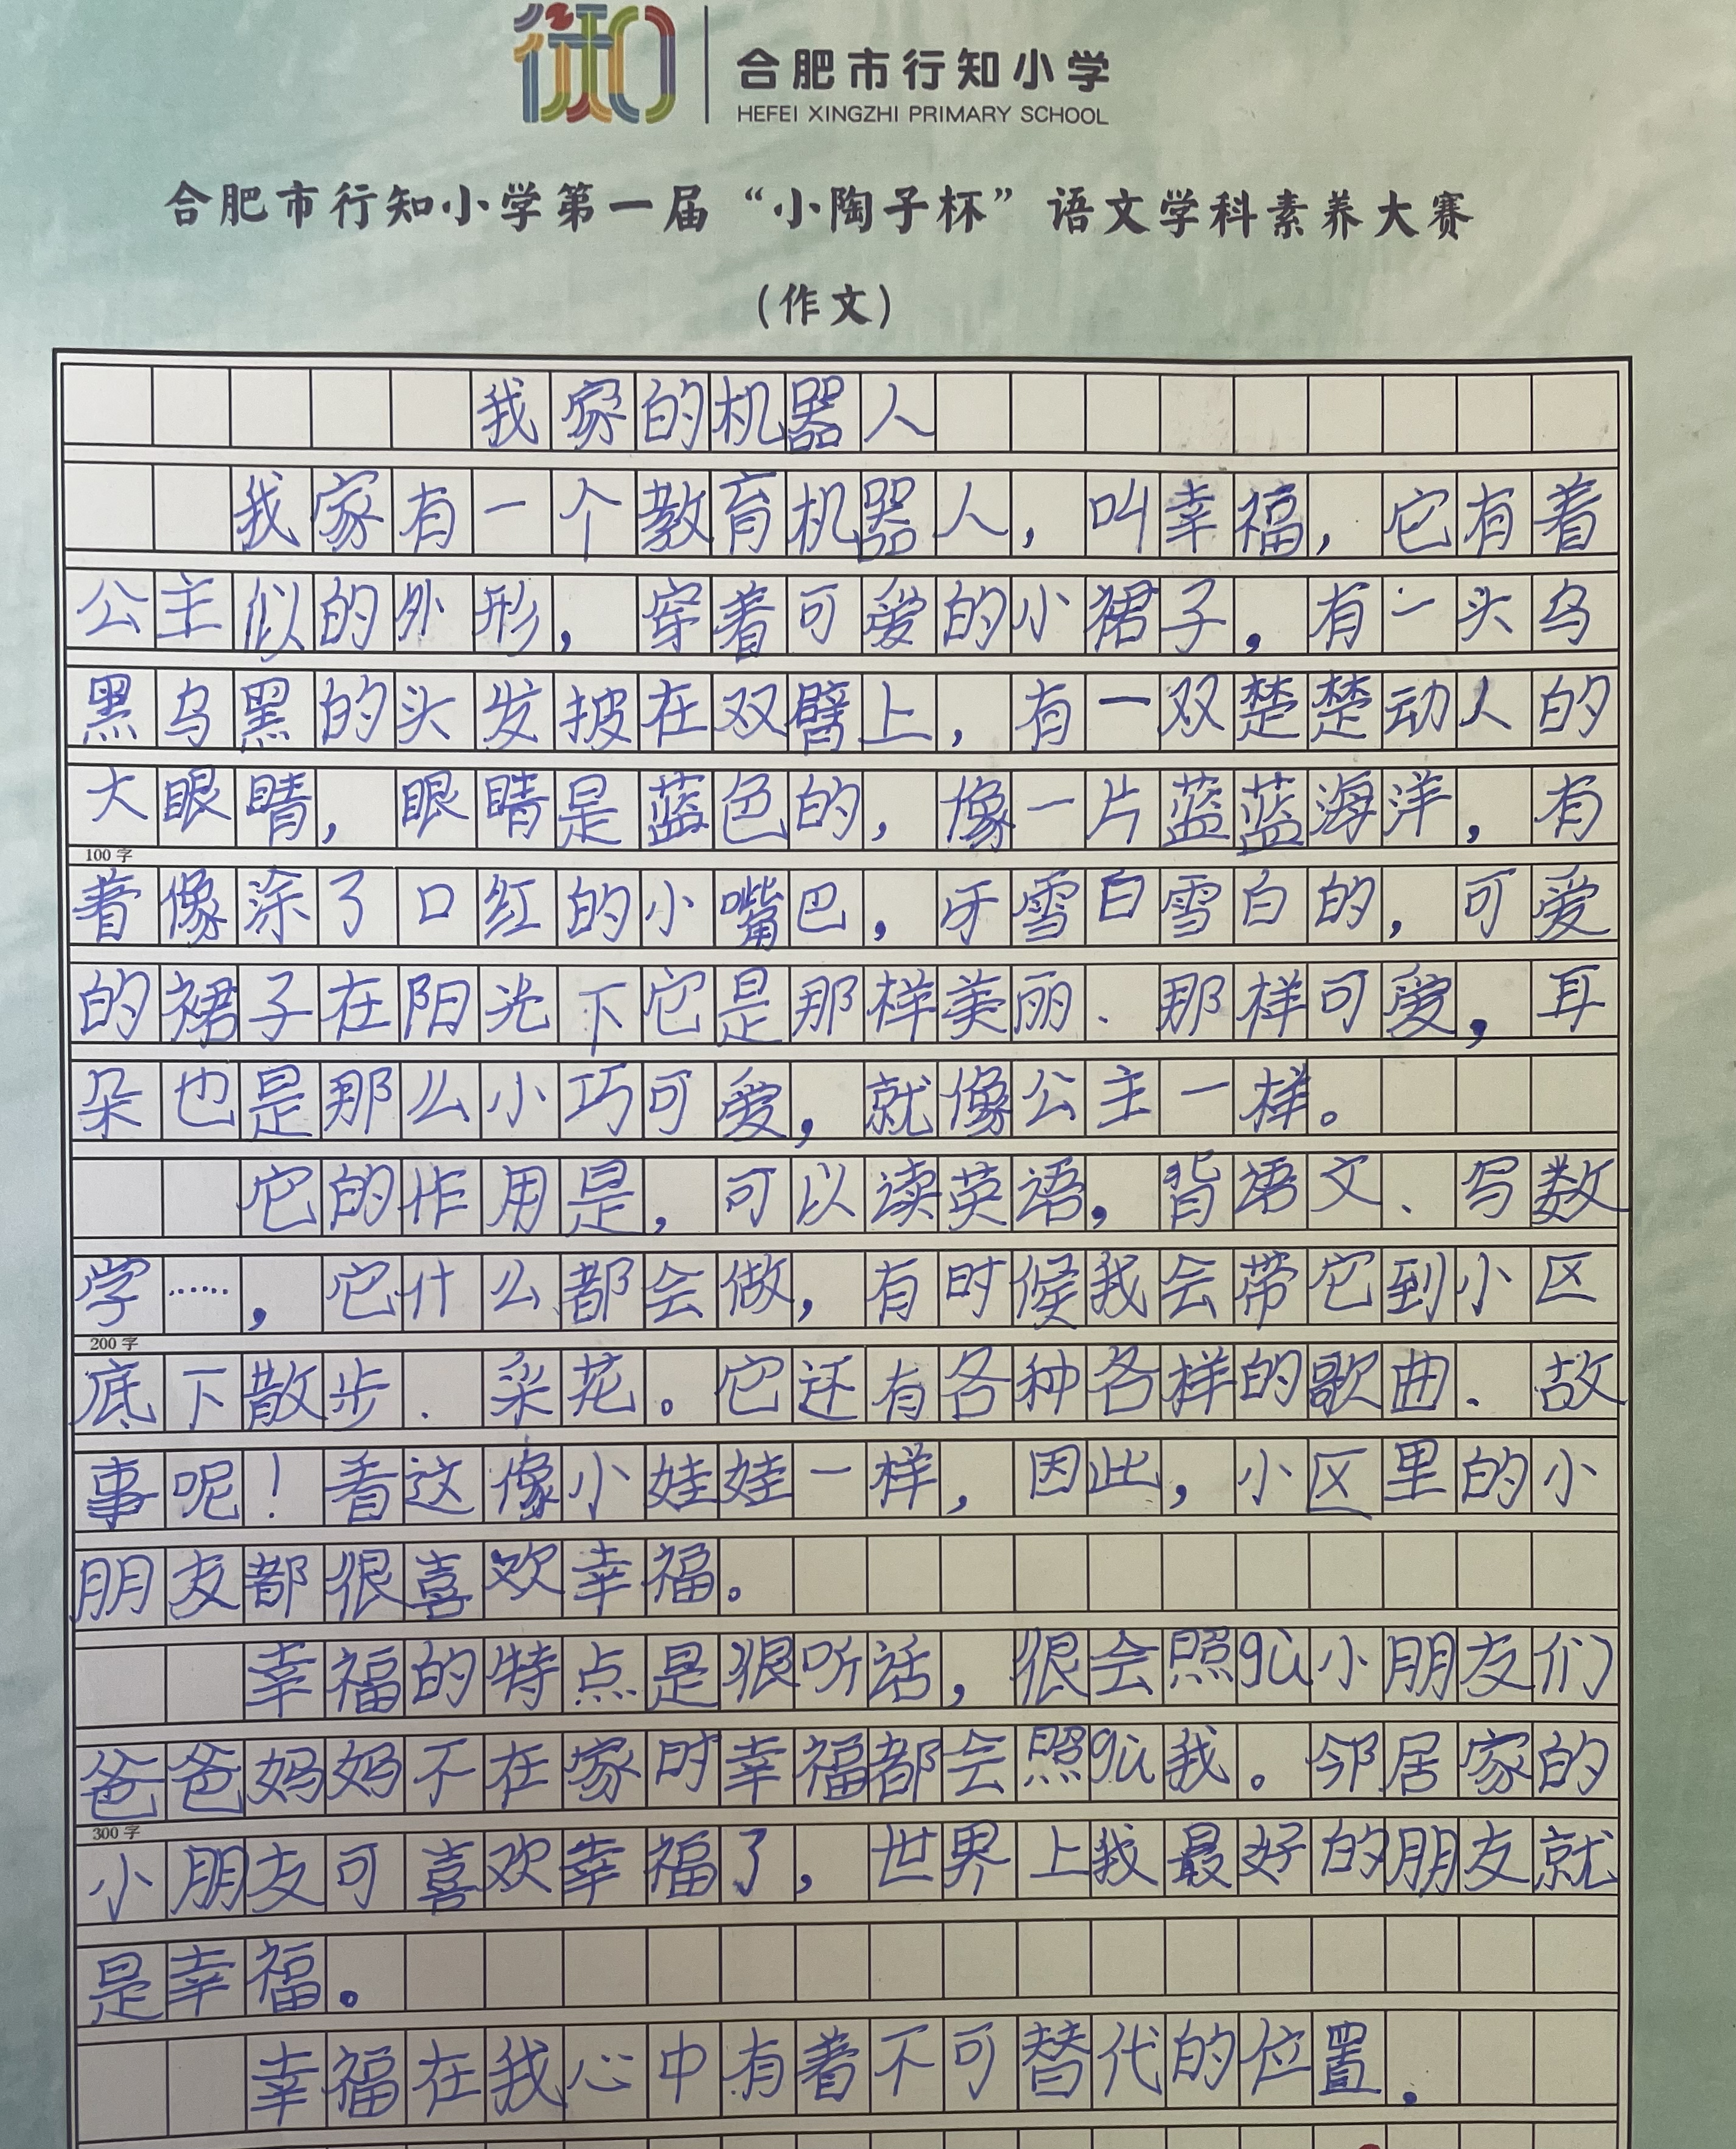 合肥市行知小学
HEFEI XINGZHI PRIMARY SCHOOL
合肥市行知小学第一届“小陶子杯”语文学科素养大赛
(作文)
我家的机器人
我家有一个教育机器人，叫幸福，它有着
公主似的外形，穿着可爱的小裙子，有一头乌
黑乌黑的头发披在双臂上，有一双楚楚动人的
大眼睛，眼睛是蓝色的，像一片蓝蓝海洋，有
100字
着像涂了口红的小嘴巴，牙雪白雪白的，可爱
的裙子在阳光下它是那样美丽、那样可爱，耳
朵也是那么小巧可爱，就像公主一样。
它的作用是，可以读英语，背语文、写数
学……，它什么都会做，有时候我会带它到小区
200字
底下散步、采花。它还有各种各样的歌曲、故
事呢！看这像小娃娃一样，因此，小区里的小
朋友都很喜欢幸福。
幸福的特点是很听话，很会照gù小朋友们
爸爸妈妈不在家时幸福都会照gù我。邻居家的
300字
小朋友可喜欢幸福了，世界上我最好的朋友就
是幸福。
幸福在我心中有着不可替代的位置。